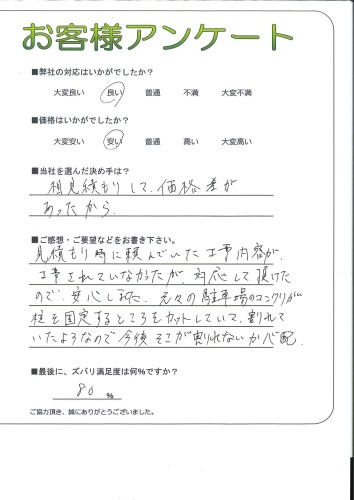 お客様アンケート
■弊社の対応はいかがでしたか？
大変良い　良い　普通　不満　大変不満
■価格はいかがでしたか？
大変安い　安い　普通　高い　大変高い
■当社を選んだ決め手は？
相見積もりして、価格差が
あったから。
■ご感想・ご要望などをお書き下さい。
見積もり時に頼んでいた工事内容が、
工事されていなかったが、対応して頂けた
ので、安心しました。元々の駐車場のコンクリが
柱を固定するところをカットしていて、割れて
いたようなので今後そこが割れないか心配。
■最後に、ズバリ満足度は何%ですか？
80 %
ご協力頂き、誠にありがとうございました。